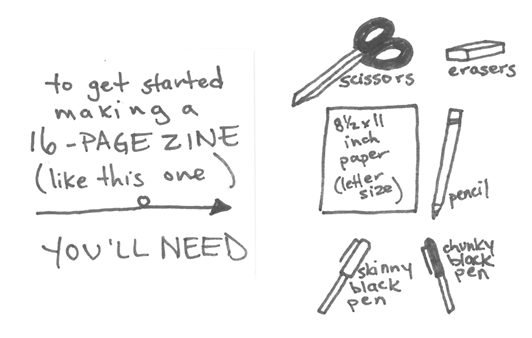 to get started
making a
16-PAGE ZINE
(like this one)
YOU'LL NEED
scissors
erasers
8½x11
inch
paper
(letter
size)
pencil
skinny
black
pen
chunky
black
pen